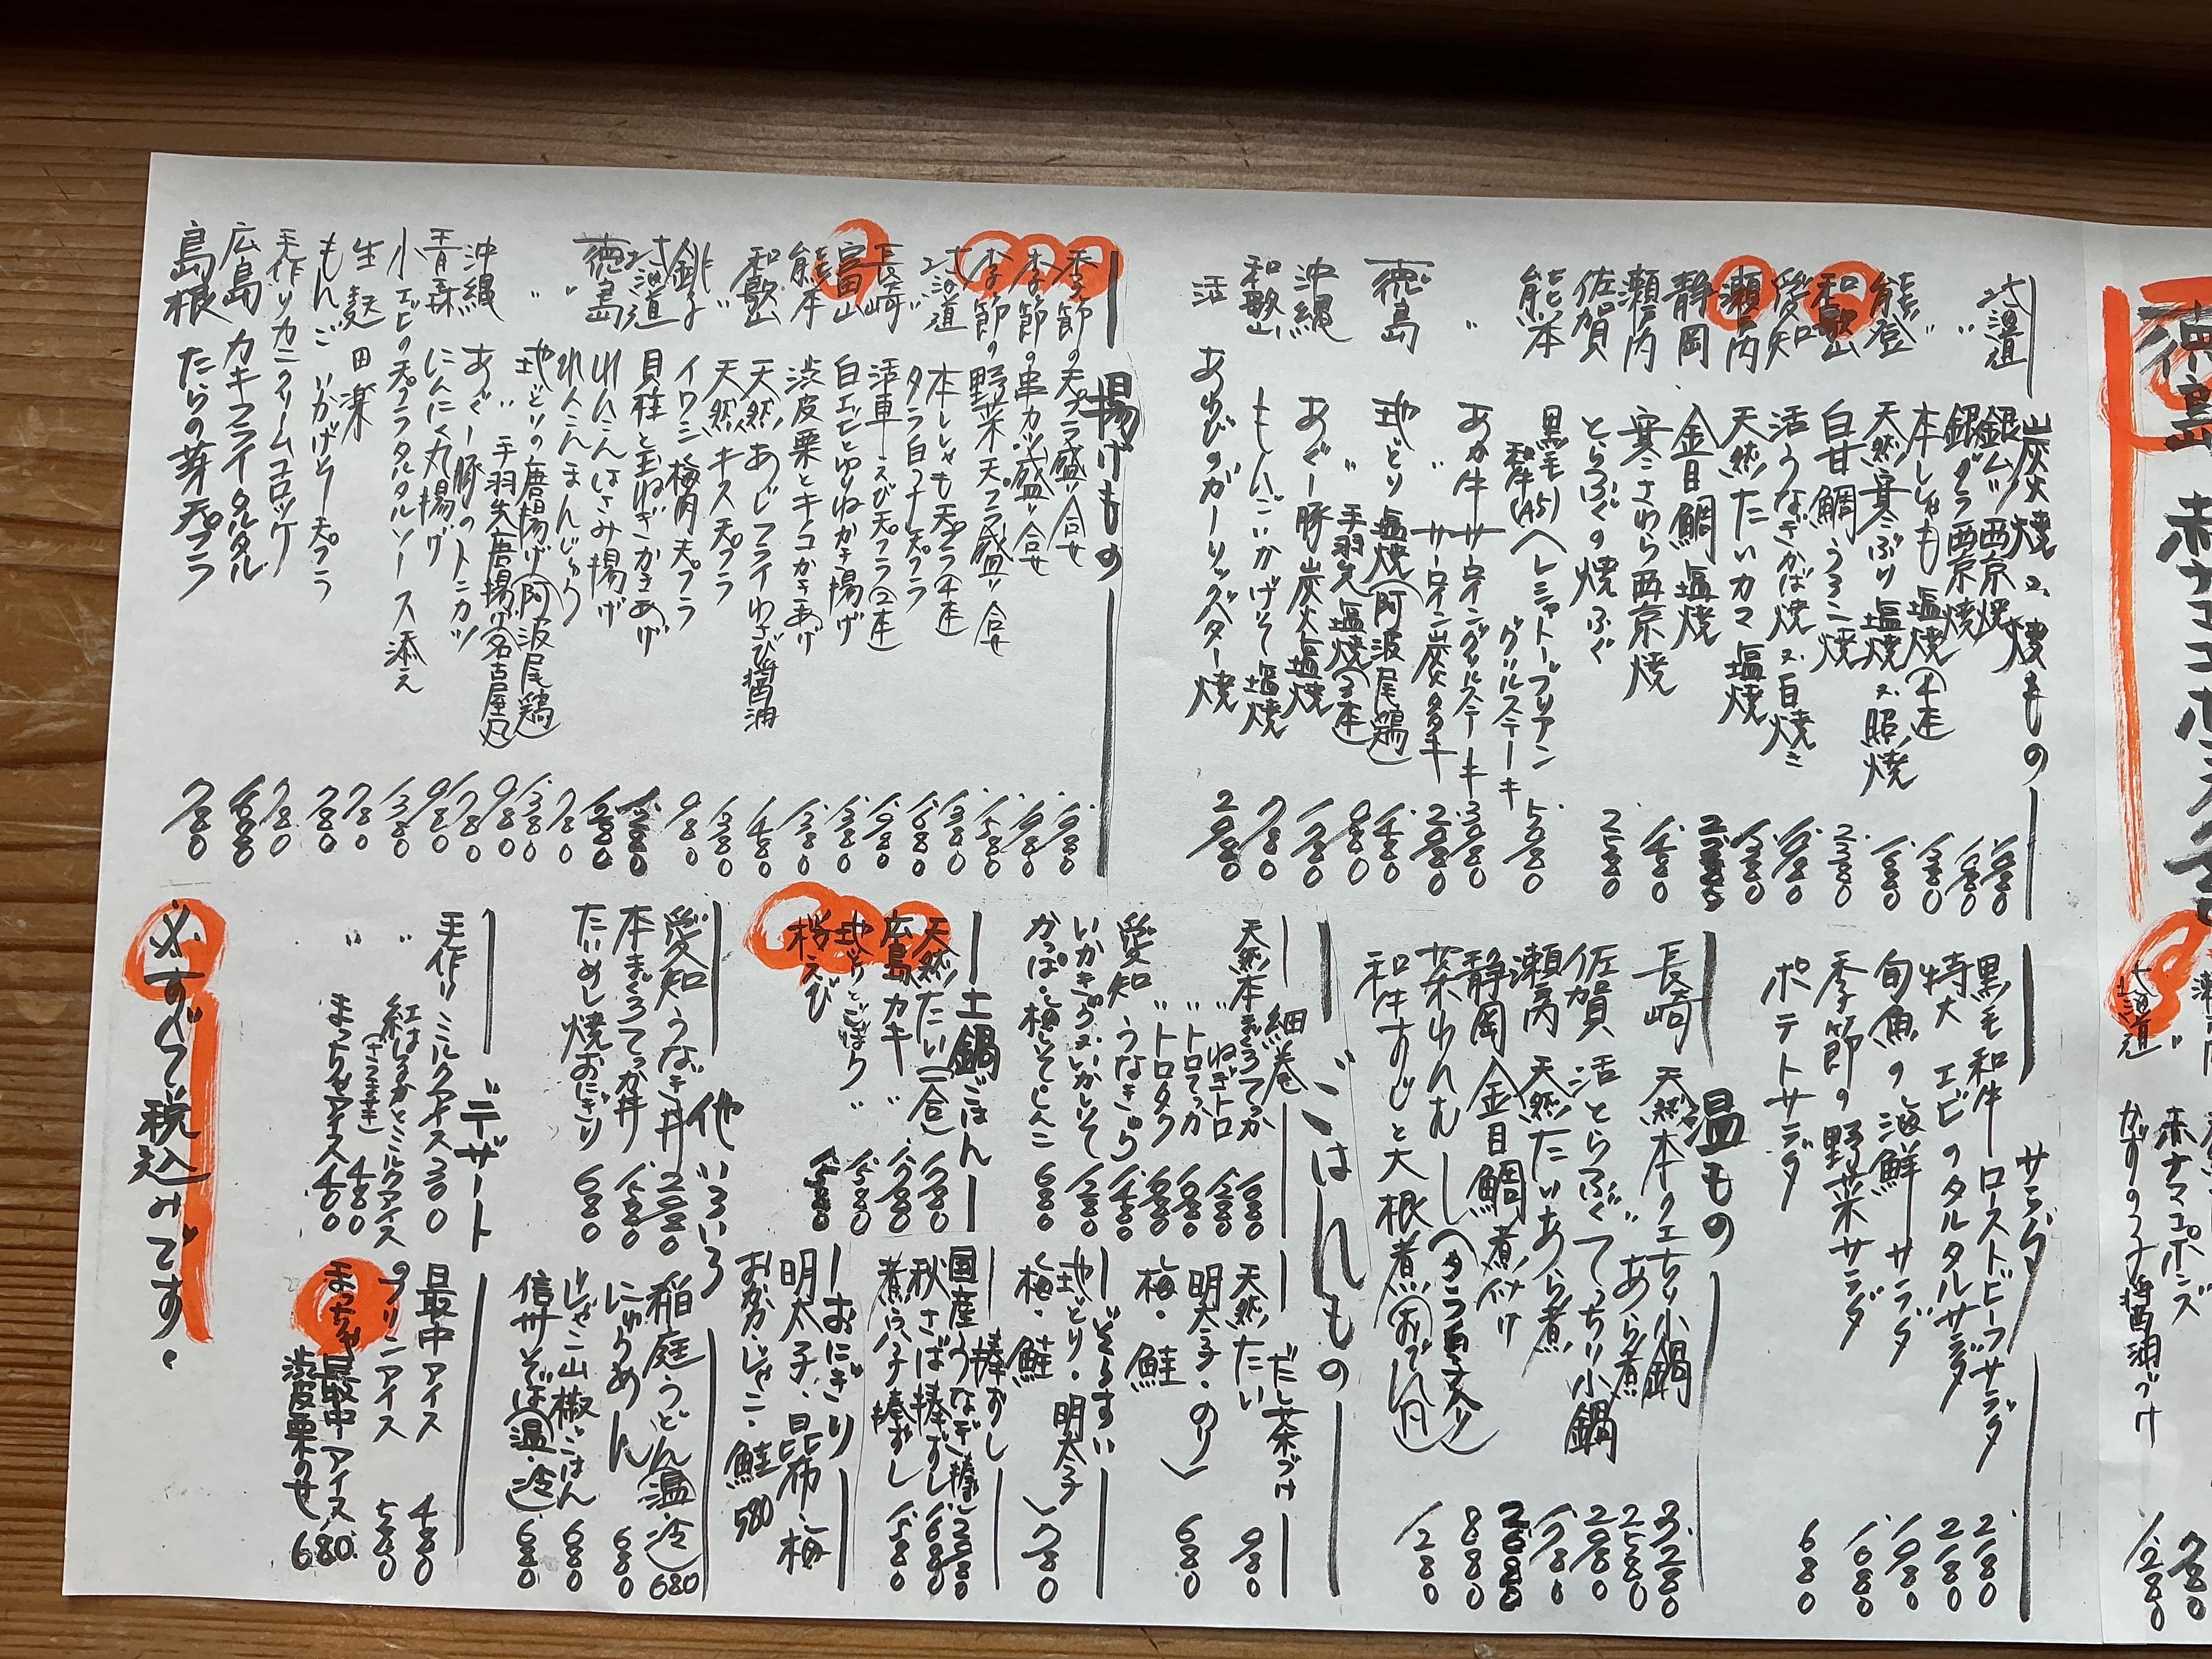 炭火焼又焼もの
北海道 銀ムツ西京焼 1.980
〃 銀ダラ西京焼 1.980
〃 本ししゃも塩焼(4連) 1.380
能登 天然寒ぶり塩焼又照焼 1.680
和歌山 白甘鯛うろこ焼 2.380
愛知 活うなぎかば焼又白焼き
瀬戸内 天然たいカマ塩焼 1.380
静岡 金目鯛塩焼
瀬戸内 寒さわら西京焼 1.480
佐賀 とらふぐの焼ふぐ 2.580
熊本 黒毛和牛(A5)ヘレシャトーブリアン
グリルステーキ 5.080
〃 あか牛サーロイングリルステーキ 3.080
〃 サーロイン炭タタキ 2.080
徳島 地どり塩焼(阿波尾鶏) 1.480
〃 手羽先塩焼(3本) 980
沖縄 あぐー豚炭火塩焼 1.280
和歌山 もんごいかげそ塩焼 780
活 あわびのガーリックバター焼 2.980
揚げもの
季節の天プラ盛り合せ 1.980
季節の串カツ盛り合せ 1.980
季節の野菜天プラ盛り合せ 1.580
北海道 本ししゃも天プラ(4連) 1.380
〃 タラ白子天プラ 1.680
長崎 活車えび天プラ(2連) 1.980
富山 白エビとゆりねかき揚げ 1.380
熊本 渋皮栗とキノコかきあげ 1.380
和歌山 天然あじフライわさび醤油 1.480
〃 天然キス天プラ 1.380
銚子 イワシ梅肉天プラ 980
北海道 貝柱と玉ねぎかきあげ
徳島 れんこんはさみ揚げ
〃 れんこんまんじゅう 780
〃 地どりの唐揚げ(阿波尾鶏) 1.380
〃 手羽先唐揚げ(名古屋風) 980
沖縄 あぐー豚のトンカツ 1.780
青森 にんにく丸揚げ 980
小エビの天プラタルタルソース添え 1.380
生麩田楽 780
もんごいかげそ天プラ 780
手作りカニクリームコロッケ 780
広島 カキフライタルタル
島根 たらの芽天プラ 780
サラダ
黒毛和牛ローストビーフサラダ 2.180
特大エビのタルタルサラダ 2.180
旬魚の海鮮サラダ 1.980
季節の野菜サラダ 1.680
ポテトサラダ 680
温もの
長崎 天然本クエちり小鍋 3.280
〃 あら煮 2.580
佐賀 活とらふぐてっちり小鍋 2.980
瀬戸内 天然たいあら煮 1.780
静岡 金目鯛煮付け
茶わんむし(タラ白子入り) 880
和牛すじと大根煮(おでん風) 1.280
ごはんもの
細巻
天然本まぐろてっか 1.680
〃 ねぎトロ 1.280
〃 トロてっか 1.980
〃 トロタク 1.680
愛知 うなきゅう 1.480
いかきゅう又いかしそ 1.280
かっぱ・梅しそしんこ 680
だし茶づけ
天然たい 980
明太子・のり
梅・鮭 680
土鍋ごはん
天然たい(一合) 1.780
広島カキ 〃 1.780
地どりごぼう 〃 1.580
桜えび
ぞうすい
地どり・明太子
梅・鮭 780
棒ずし
国産うなぎ棒ずし 2.980
秋さば棒ずし 1.680
煮穴子棒ずし 1.580
おにぎり
明太子、昆布、梅
おかか・じゃこ・鮭 580
他いろいろ
愛知うなぎ丼 2.980
本まぐろてっか丼 1.580
たいめし焼おにぎり 680
稲庭うどん(温・冷) 680
にゅうめん 680
じゃこ山椒ごはん 680
信州そば(温・冷) 680
デザート
手作りミルクアイス 300
〃 紅はるかとミルクアイス 480
〃 まっちゃアイス 400
最中アイス 480
プリンアイス 580
まっちゃ最中アイス
渋皮栗のせ 680
必ずすべて税込みです。
徳島
北海道
赤ナマコポンズ 780
かずのこ醤油づけ 1.280